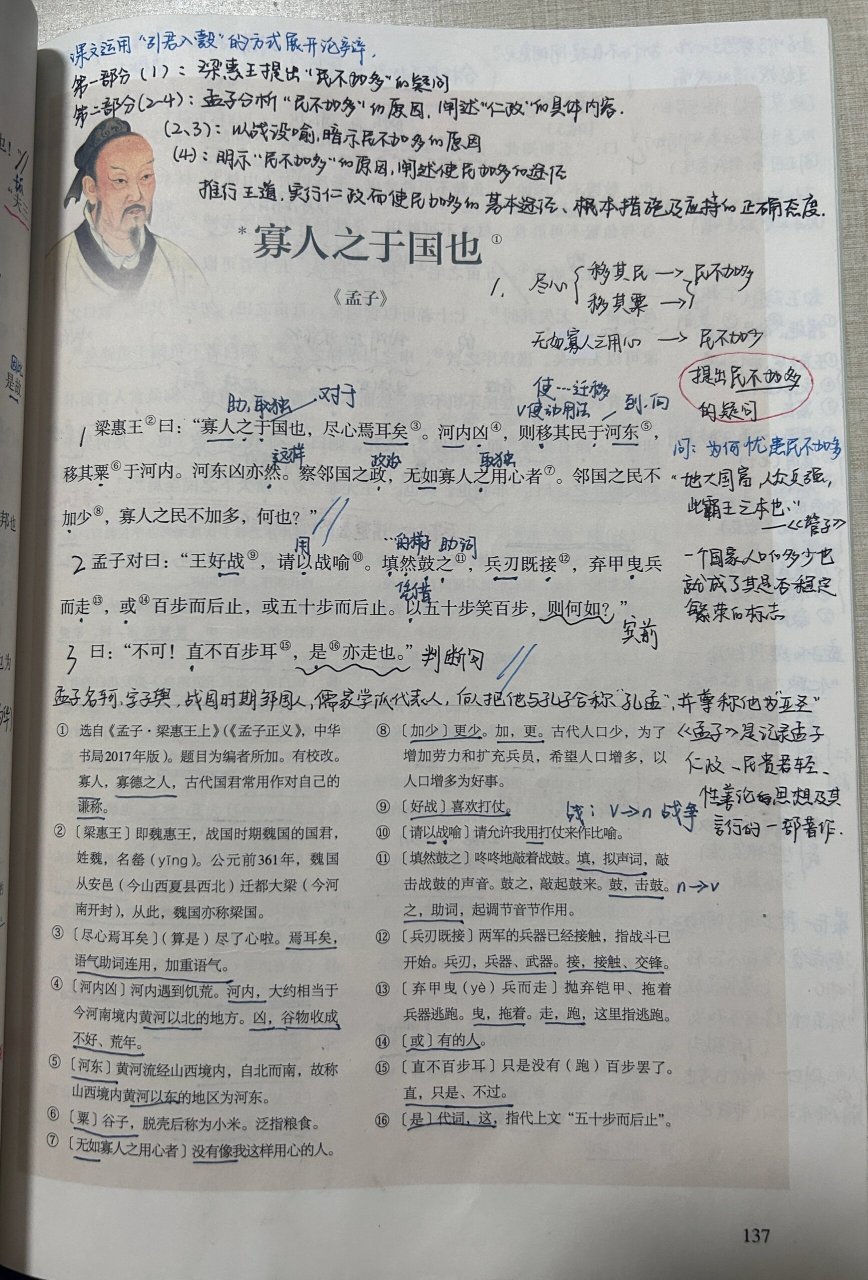 课文运用“引君入彀”的方式展开论辩.
第一部分(1)：梁惠王提出“民不加多”的疑问
第二部分(2-4)：孟子分析“民不加多”的原因，阐述“仁政”的具体内容.
(2、3)：以战设喻，暗示民不加多的原因
(4)：明示“民不加多”的原因，阐述使民加多的途径
推行王道，实行仁政而使民加多的基本途径、根本措施及应持的正确态度.
*寡人之于国也①
《孟子》
1. 尽心 移其民 → 民不加多
移其粟 →
无如寡人之用心 → 民不加多
提出民不加多
的疑问
助，取独 对于
使…迁移
V使动用法 到、向
1 梁惠王②曰：“寡人之于国也，尽心焉耳矣③。河内凶④，则移其民于河东⑤，
这样 政治 取独
移其粟⑥于河内。河东凶亦然。察邻国之政，无如寡人之用心者⑦。邻国之民不
加少⑧，寡人之民不加多，何也？”
问：为何忧患民不加多
“地大国富，人众兵强，
此霸王之本也”
——《管子》
一个国家人口的多少也
就成了其是否稳定
繁荣的标志
用 …的样子 助词
2 孟子对曰：“王好战⑨，请以战喻⑩。填然鼓之⑪，兵刃既接⑫，弃甲曳兵
凭借
而走⑬，或⑭百步而后止，或五十步而后止。以五十步笑百步，则何如？”
宾前
3 曰：“不可！直不百步耳⑮，是⑯亦走也。” 判断句
孟子名轲，字子舆，战国时期邹国人，儒家学派代表人，后人把他与孔子合称“孔孟”，并尊称他为“亚圣”
《孟子》是记录孟子
仁政、民贵君轻、
性善论的思想及其
言行的一部著作.
① 选自《孟子·梁惠王上》(《孟子正义》，中华
书局2017年版)。题目为编者所加。有校改。
寡人，寡德之人，古代国君常用作对自己的
谦称。
②〔梁惠王〕即魏惠王，战国时期魏国的国君，
姓魏，名罃(yīng)。公元前361年，魏国
从安邑(今山西夏县西北)迁都大梁(今河
南开封)，从此，魏国亦称梁国。
③〔尽心焉耳矣〕(算是)尽了心啦。焉耳矣，
语气助词连用，加重语气。
④〔河内凶〕河内遇到饥荒。河内，大约相当于
今河南境内黄河以北的地方。凶，谷物收成
不好、荒年。
⑤〔河东〕黄河流经山西境内，自北而南，故称
山西境内黄河以东的地区为河东。
⑥〔粟〕谷子，脱壳后称为小米。泛指粮食。
⑦〔无如寡人之用心者〕没有像我这样用心的人。
⑧〔加少〕更少。加，更。古代人口少，为了
增加劳力和扩充兵员，希望人口增多，以
人口增多为好事。
⑨〔好战〕喜欢打仗。 战：V→n 战争
⑩〔请以战喻〕请允许我用打仗来作比喻。
⑪〔填然鼓之〕咚咚地敲着战鼓。填，拟声词，敲
击战鼓的声音。鼓之，敲起鼓来。鼓，击鼓。 n→v
之，助词，起调节音节作用。
⑫〔兵刃既接〕两军的兵器已经接触，指战斗已
开始。兵刃，兵器、武器。接，接触、交锋。
⑬〔弃甲曳(yè)兵而走〕抛弃铠甲、拖着
兵器逃跑。曳，拖着。走，跑，这里指逃跑。
⑭〔或〕有的人。
⑮〔直不百步耳〕只是没有(跑)百步罢了。
直，只是、不过。
⑯〔是〕代词，这，指代上文“五十步而后止”。
137